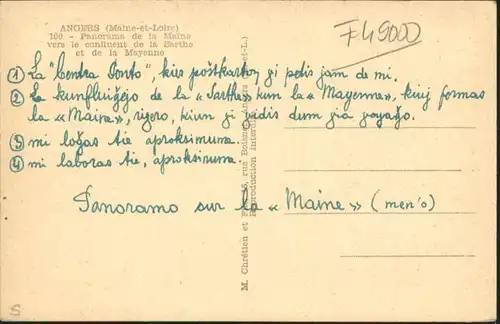 ANGERS (Maine-et-Loire)
160 - Panorama de la Maine
vers le confluent de la Sarthe
et de la Mayenne
F49000
① La "Centra Ponto", kies poŝtkarton ĝi petis jam de mi.
② La kunfluiĝejo de la «Sarthe» kun la «Mayenne», kiuj formas
la «Maine», rivero, kiun ĝi vidis dum ĝia voyaĝo.
③ mi loĝas tie aproksimuma.
④ mi laboras tie, aproksimuma.
Panoramo sur la «Maine» (men'o)
M. Chrétien et rue Boisnet, Angers (M.-et-L.)
Reproduction Interdite
S